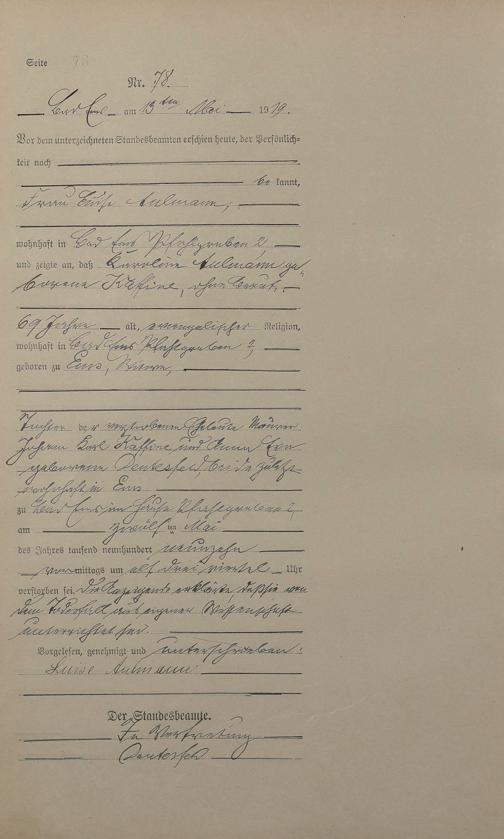 Seite 78
Nr. 78.
Bad Ems am 13ten Mai 1919.
Vor dem unterzeichneten Standesbeamten erschien heute, der Persönlich-
keit nach
be kannt,
Frau Luise Aulmann,
wohnhaft in Bad Ems Pfahlgraben 2
und zeigte an, daß Karoline Aulmann ge-
borene Kassine, ohne Beruf,
69 Jahre alt, evangelischer Religion,
wohnhaft in Bad Ems Pfahlgraben 2,
geboren zu Ems, Witwe,
Tochter der verstorbenen Eheleute Maurer
Johann Karl Kassine und Anna
geborene beide zuletzt
wohnhaft in Ems
zu Bad Ems im Hause Pfahlgraben 2
am zwölften Mai
des Jahres tausend neunhundert neunzehn
vormittags um elf drei viertel Uhr
verstorben sei. Die Anzeigende erklärte, daß sie von
dem Todesfall aus eigener Wissenschaft
unterrichtet sei.
Vorgelesen, genehmigt und unterschrieben:
Luise Aulmann
Der Standesbeamte.
In Vertretung